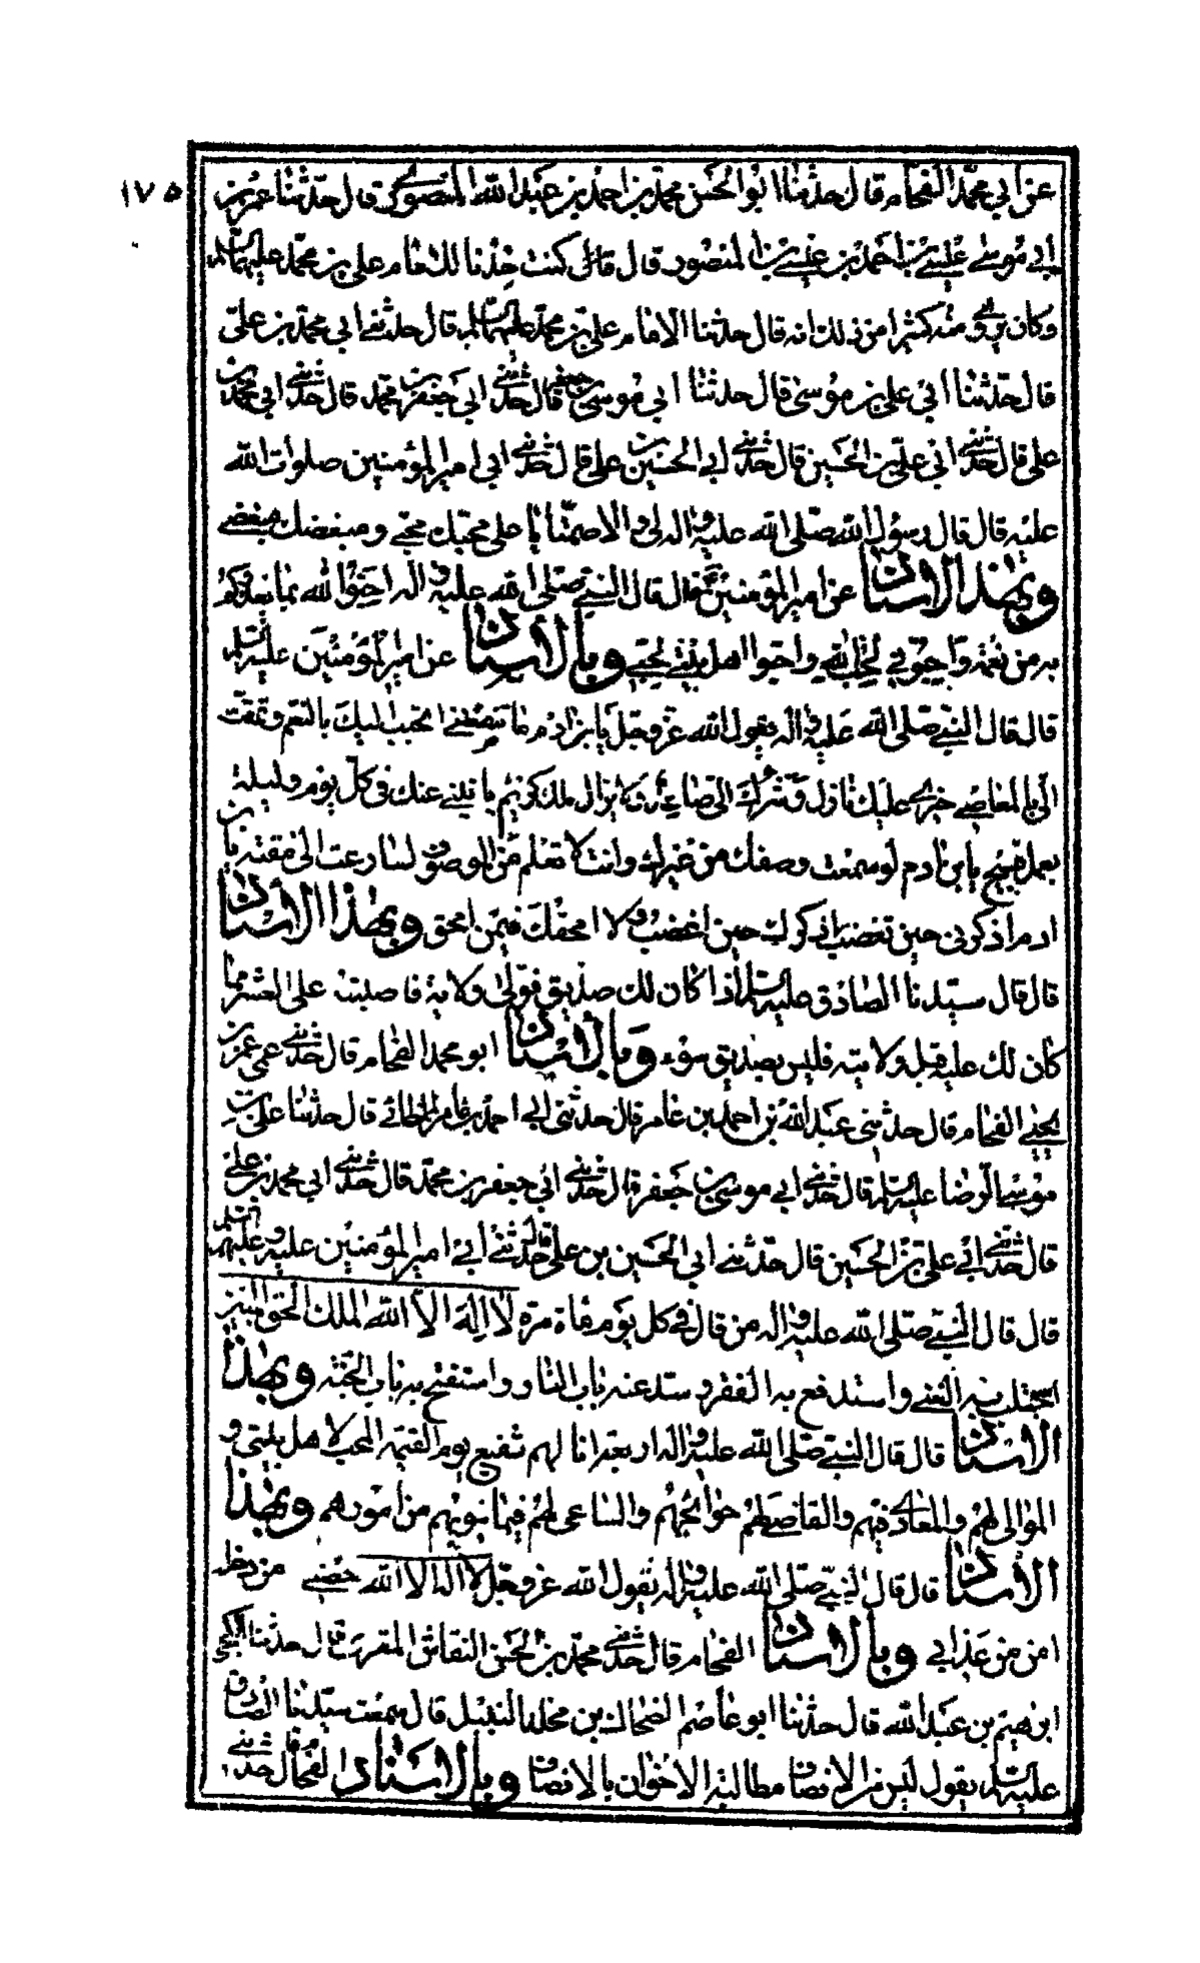 ١٧٥
عن ابي محمّد الفحام قال حدثنا ابو الحسن محمد بن احمد بن عبد الله المنصوري قال حدّثنا عمر بن
ابي موسى عيسى بن احمد بن عيسى بن المنصور قال قال كنت خدنا للامام علي بن محمد عليهما السلم
وكان يروي منه كثيرا من ذلك انه قال حدثنا الامام علي بن محمد عليهما السلم قال حدثني ابي محمد بن علي
قال حدّثنا ابي علي بن موسى قال حدثنا ابي موسى بن جعفر قال حدثني ابي جعفر بن محمد قال حدثني ابي محمد بن
علي قال حدثني ابي علي بن الحسين قال حدثني ابي الحسين بن علي قال حدثني ابي امير المؤمنين صلوات الله
عليه قال قال رسول الله صلى الله عليه واله لي والا صمتا يا علي محبك محبي ومبغضك مبغضي
وبهذا الاسناد عن امير المؤمنين قال قال النبي صلى الله عليه واله احبوا الله بما يغذوكم
به من نعمة واحبوني لحب الله واحبوا اهل بيتي لحبي وبالاسناد عن امير المؤمنين عليه السلم
قال قال النبي صلى الله عليه واله يقول الله عز وجل يا بن ادم ما تنصفني اتحبب اليك بالنعم وتتمقت
الي بالمعاصي خيري عليك نازل وشرك الي صاعد ولا يزال ملك كريم ياتيني عنك في كل يوم وليلة
بعمل قبيح يا بن ادم لو سمعت وصفك من غيرك وانت لا تعلم من الموصوف لسارعت الى مقته يا بن
ادم اذكرني حين تغضب اذكرك حين اغضب ولا امحقك فيمن امحق وبهذا الاسناد
قال قال سيدنا الصادق عليه السلم اذا كان لك صديق فولي ولاية فاصبته على العشر مما
كان لك عليه قبل ولايته فليس بصديق سوء وبالاسناد ابو محمد الفحام قال حدثني عمي عمر بن
يحيى الفحام قال حدثني عبد الله بن احمد بن عامر قال حدثني ابي احمد بن عامر الطائي قال حدثنا علي بن
موسى الرضا عليه السلم قال حدثني ابي موسى بن جعفر قال حدثني ابي جعفر بن محمد قال حدثني ابي محمد بن علي
قال حدثني ابي علي بن الحسين قال حدثني ابي الحسين بن علي قال حدثني ابي امير المؤمنين عليه وعليهم السلم
قال قال النبي صلى الله عليه واله من قال في كل يوم مائة مرة لا اله الا الله الملك الحق المبين
استجلب به الغنى واستدفع به الفقر وسد عنه باب النار واستفتح به باب الجنة وبهذا
الاسناد قال قال النبي صلى الله عليه واله اربعة انا لهم شفيع يوم القيمة المحب لاهل بيتي و
الموالي لهم والمعادي فيهم والقاضي لهم حوائجهم والساعي لهم فيما ينوبهم من امورهم وبهذا
الاسناد قال قال النبي صلى الله عليه واله يقول الله عز وجل لا اله الا الله حصني من دخله
امن من عذابي وبالاسناد الفحام قال حدثني محمد بن الحسن النقاش المقري قال حدثنا الكجي
ابرهيم بن عبد الله قال حدثنا ابو عاصم الضحاك بن مخلد النبيل قال سمعت سيدنا الصادق
عليه السلم يقول ليس من الانصاف مطالبة الاخوان بالانصاف وبالاسناد الفحام قال حدثني